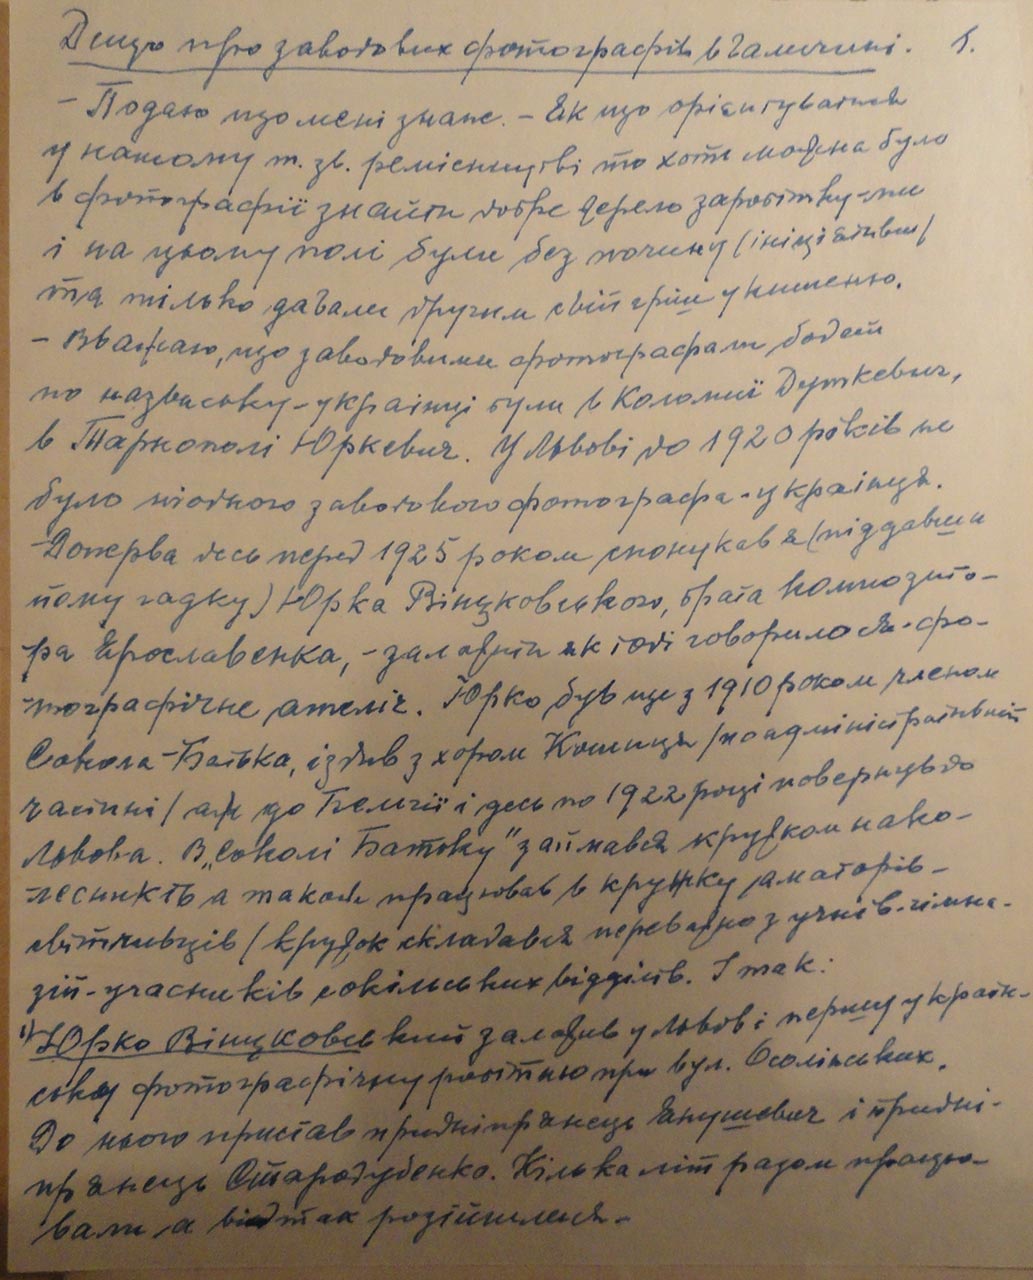 Дещо про заводових фотографів в Галичині. 1.
- Подаю що мені знане. - Як що орієнтуватися
у нашому т. зв. ремісництві то хотя можна було
в фотографії знайти добре джерело заробітку - ми
і на цьому полі були без почину (ініціятиви)
та тілько давали другим свій гріш у кишеню.
- Вважаю, що заводовими фотографами бодай
по назвиську - українці були в Коломиї Дуткевич,
в Тарнополі Юркевич. У Львові до 1920 років не
було ніодного заводового фотографа - українця.
Доперва десь перед 1925 роком спонукав я (піддавши
йому гадку) Юрка Вінцковського, брата композито-
ра Ярославенка, - заложити як тоді говорилося - фо-
тографічне ательє. Юрко був ще з 1910 роком членом
Сокола-Батька, їздив з хором Кошиця (по адміністративній
частині) аж до Бельгії і десь по 1922 році повернув до
Львова. В "Соколі Батьку" займався кружком нако-
лесників а також працював в кружку аматорів-
світливців (кружок складався переважно з учнів-гімна-
зій - учасників сокільських відділів. І так:
1) Юрко Вінцковський заложив у Львові першу україн-
ську фотографічну робітню при вул. Осолінських.
До нього пристав придніпрянець Янушевич і придні-
прянець Стародубенко. Кілька літ разом працю-
вали а відтак розійшлися. -